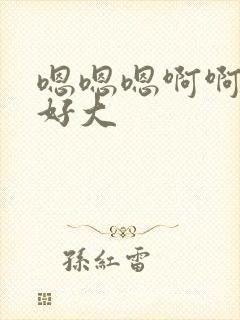 嗯嗯嗯啊啊
好大
孫紅雷